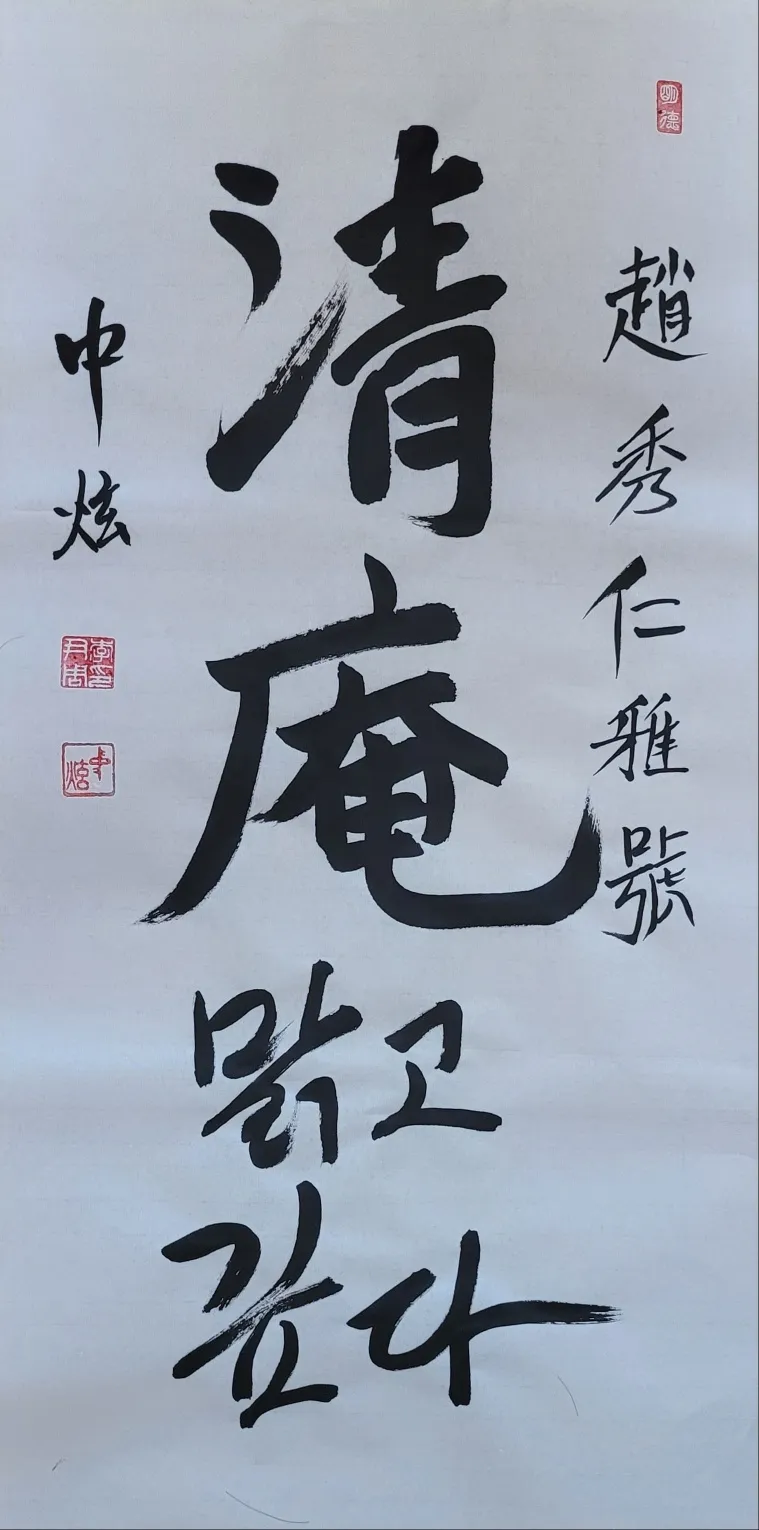 明德
趙秀仁雅號
清庵
맑고
깊다
中炫
中炫